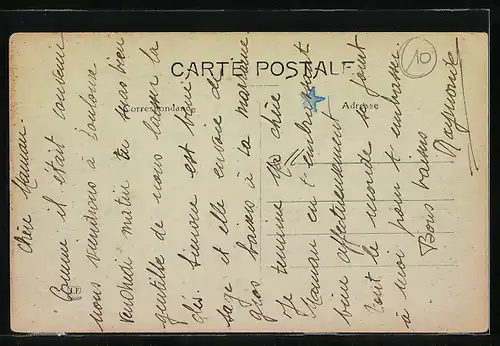 CARTE POSTALE
Correspondance
Adresse
10
Chère Maman.
Comme il était convenu
nous viendrons à Toulouse
Vendredi matin tu seras bien
gentille de nous laisser la
clés. Simone est bien
sage et elle envoie de
gros baisers à sa marraine.
Je termine ma chère
Maman en t'embrassant
bien affectueusement
tout le monde se joint
à moi pour t'embrasser
Bons baisers
Raymonde